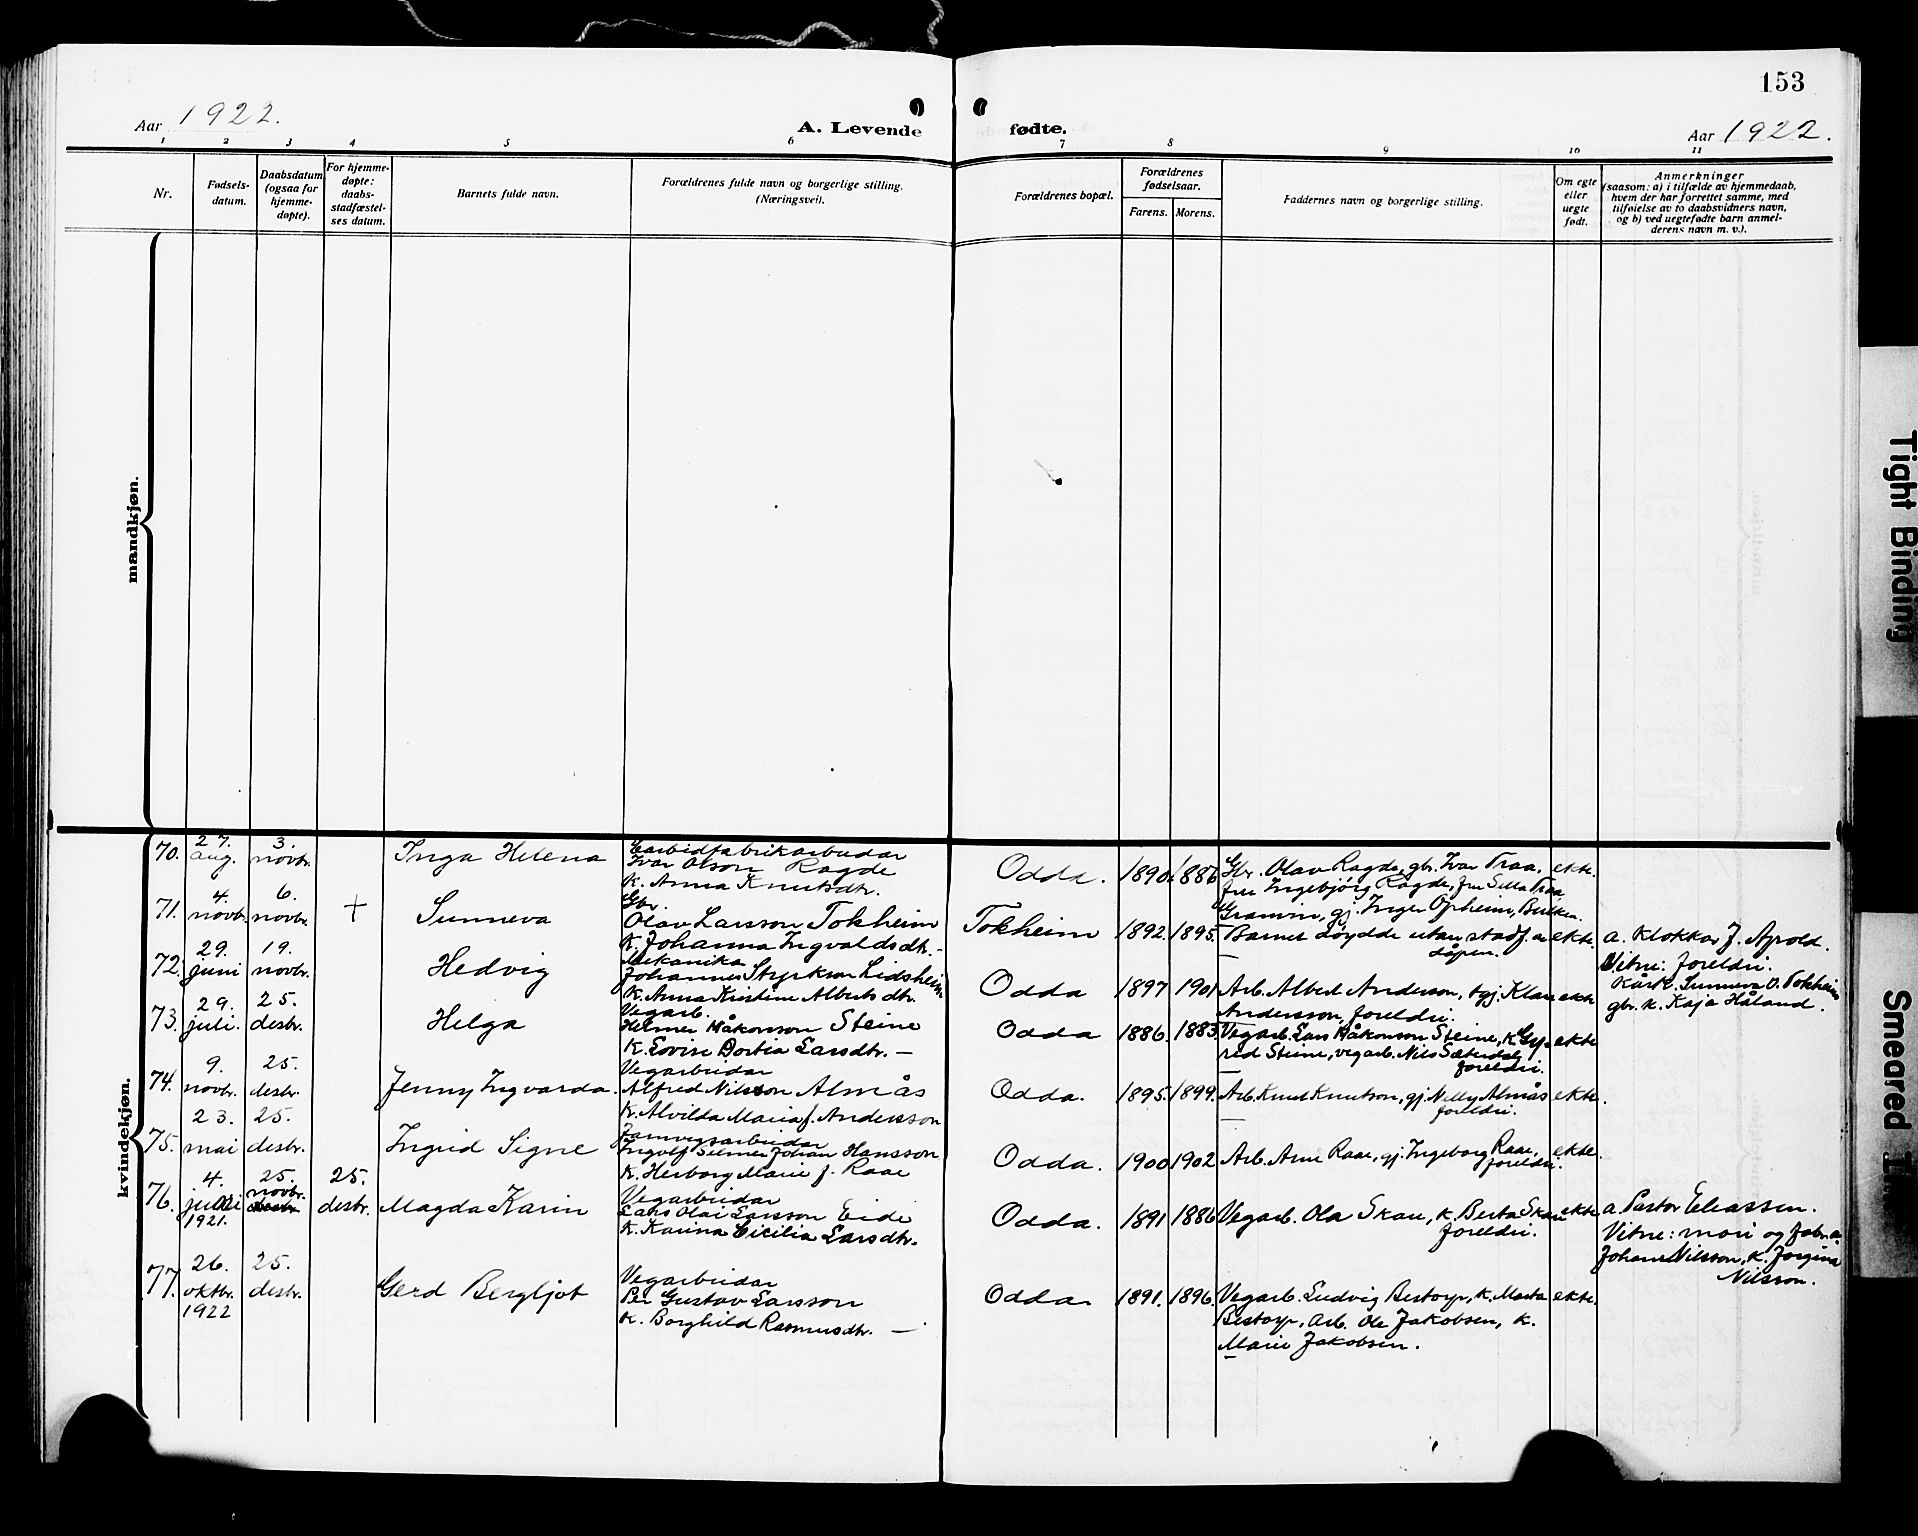 153
Aar 1922.
A. Levende fødte.
Aar 1922.
1 2 3 4 5 6 7 8 9 10 11
Nr.
Fødsels-
datum.
Daabsdatum
(ogsaa for
hjemme-
døpte).
For hjemme-
døpte:
daabs-
stadfæstel-
ses datum.
Barnets fulde navn.
Forældrenes fulde navn og borgerlige stilling.
(Næringsvei).
Forældrenes bopæl.
Forældrenes
fødselsaar.
Farens. Morens.
Faddernes navn og borgerlige stilling.
Om egte
eller
uegte
født.
Anmerkninger
(saasom: a) i tilfælde av hjemmedaab,
hvem der har forrettet samme, med
tilføielse av to daabsvidners navn,
og b) ved uegtefødte barn anmel-
derens navn m. v.).
mandkjøn.
kvindekjøn.
70.
27.
aug.
3.
novbr.
Inga Helena
Carbidfabrikarbeidar
Ivar Olson Ragde
k. Anna Knutsdtr.
Odda.
1890. 1886
Gbr. Olav Ragde, gbr. Ivar Traa,
fru Ingebjörg Ragde, fru Silla Traa
Granvin, gj. Inger Opheim, Bulken.
ekte.
71.
4.
novbr.
6.
novbr.
+
Sunneva
Gbr.
Olav Larsson Tokheim
k. Johanna Ingvaldsdtr. -
Tokheim
1892. 1895.
Barnet döydde utan stadf. av
dåpen.
ekte.
a. Klokkar J. Apold.
Vitne: foreldri.
Kårk. Sunneva O. Tokheim
gbr. k. Kaja Håland.
72.
29.
juni
19.
novbr.
Hedvig
Mekanikar
Johannes Styrkson Lidsheim
k. Anna Kristine Albertsdtr.
Odda
1897 1901
Arb. Albert Anderson, gj. Klara
Andersson, foreldri.
ekte
73.
29.
juli.
25.
desbr.
Helga
Vegarb.
Helmer Håkonson Steine
k. Lovise Dortia Larsdtr. —
Odda
1886. 1883.
Vegarb. Lars Håkonson Steine, k. Gy-
rid Steine, vegarb. Nils Sæterdal,
foreldri.
ekte
74.
9.
novbr.
25.
desbr.
Jenny Ingvarda.
Vegarbeidar
Alfred Nilsson Almås
k. Alvilda Maria f. Andersson
Odda.
1895. 1899.
Arb. Knut Knutson, gj. Nelly Almås
foreldri.
ekte.
75.
23.
mai
25.
desbr.
Ingrid Signe
Jarnvegsarbeidar
Ingolf Selmer Johan Hansson
k. Herborg Marie f. Raae
Odda.
1900 1902
Arb. Arne Raae, gj. Ingeborg Raae,
foreldri.
ekte.
76.
4.
juli
1921.
25.
novbr.
desbr.
25.
desbr.
Magda Karin
Vegarbeidar
Lars Olai Larsson Eide
k. Karina Cicilia Larsdtr.
Odda.
1891 1886
Vegarb. Ola Skau, k. Berta Skau
foreldri.
ekte.
a. Pastor Eliassen.
Vitne: mori og
Johan Nilsson, k. Jorgina
Nilsson.
77.
26.
oktbr.
1922
25.
desbr.
Gerd Bergljot
Vegarbeidar
Per Gustav Larsson
k. Borghild Rasmusdtr. —
Odda
1891. 1896.
Vegarb. Ludvig Bestorp, k. Marta
Bestorp, Arb. Ole Jakobsen, k.
Marie Jakobsen.
ekte.
Tight Binding
Smeared